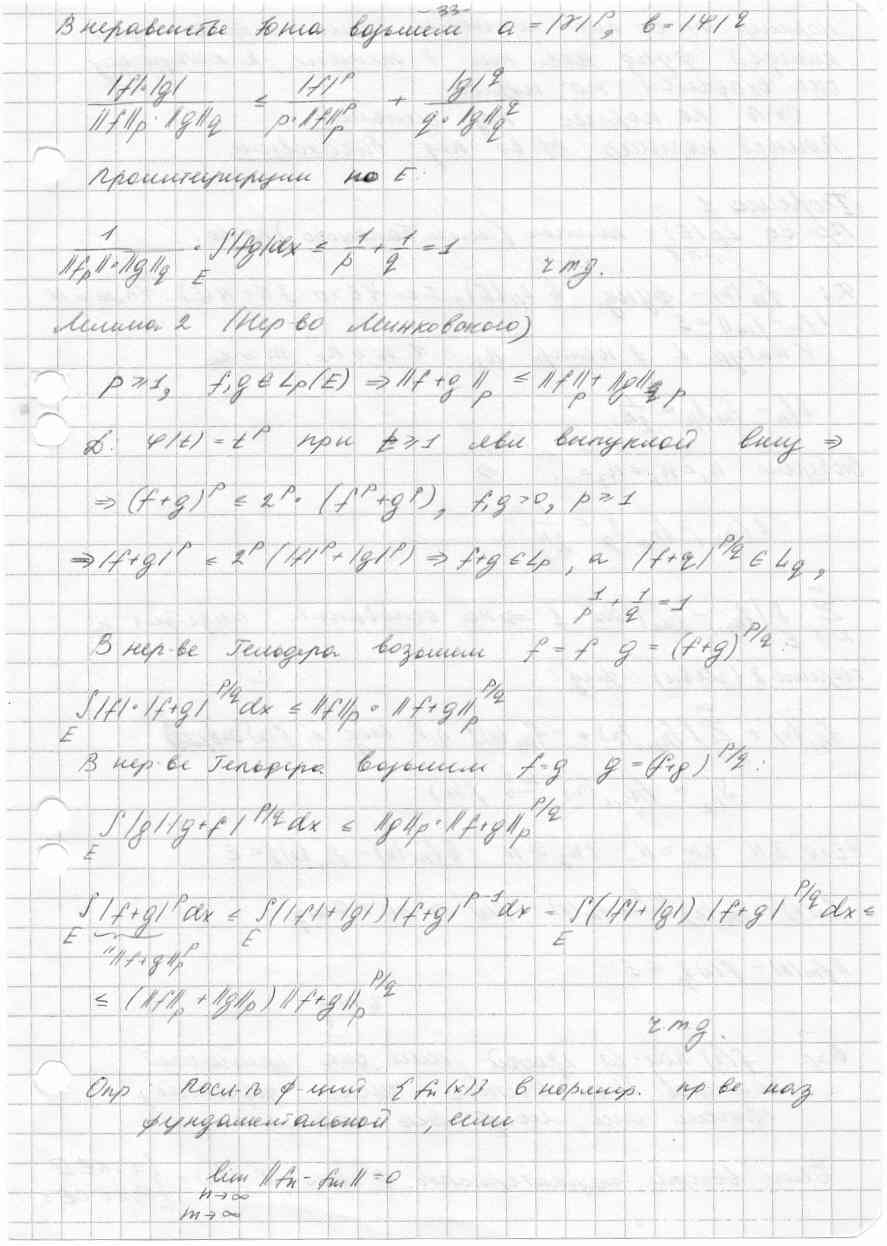 -33-
В неравенстве Юнга возьмем a = |γ|^p, b = |ψ|^q
|f|·|g| / (||f||_p · ||g||_q) ≤ |f|^p / (p · ||f||_p^p) + |g|^q / (q · ||g||_q^q)
Проинтегрируем по E:
1 / (||f_p|| · ||g||_q) · ∫_E |fg|dx ≤ 1/p + 1/q = 1 ч.т.д.
Лемма 2 (Нер-во Минковского)
p ≥ 1, f,g ∈ L_p(E) ⇒ ||f+g||_p ≤ ||f||_p + ||g||_p
Д: φ(t) = t^p при t ≥ 1 явл выпуклой вниз ⇒
⇒ (f+g)^p ≤ 2^p · (f^p + g^p), f,g > 0, p ≥ 1
⇒ |f+g|^p ≤ 2^p (|f|^p + |g|^p) ⇒ f+g ∈ L_p, а |f+g|^{p/q} ∈ L_q,
1/p + 1/q = 1
В нер-ве Гельдера возьмем f = f g = (f+g)^{p/q}:
∫_E |f|·|f+g|^{p/q} dx ≤ ||f||_p · ||f+g||_p^{p/q}
В нер-ве Гельдера возьмем f = g g = (f+g)^{p/q}:
∫_E |g| |g+f|^{p/q} dx ≤ ||g||_p · ||f+g||_p^{p/q}
∫_E |f+g|^p dx ≤ ∫_E (|f|+|g|) |f+g|^{p-1} dx = ∫_E (|f|+|g|) |f+g|^{p/q} dx ≤
"||f+g||_p^p
≤ (||f||_p + ||g||_p) ||f+g||_p^{p/q}
ч.т.д.
Опр: Посл-ть ф-ций {f_n(x)} в нормир. пр-ве наз
фундаментальной, если
lim ||f_n - f_m|| = 0
n→∞
m→∞